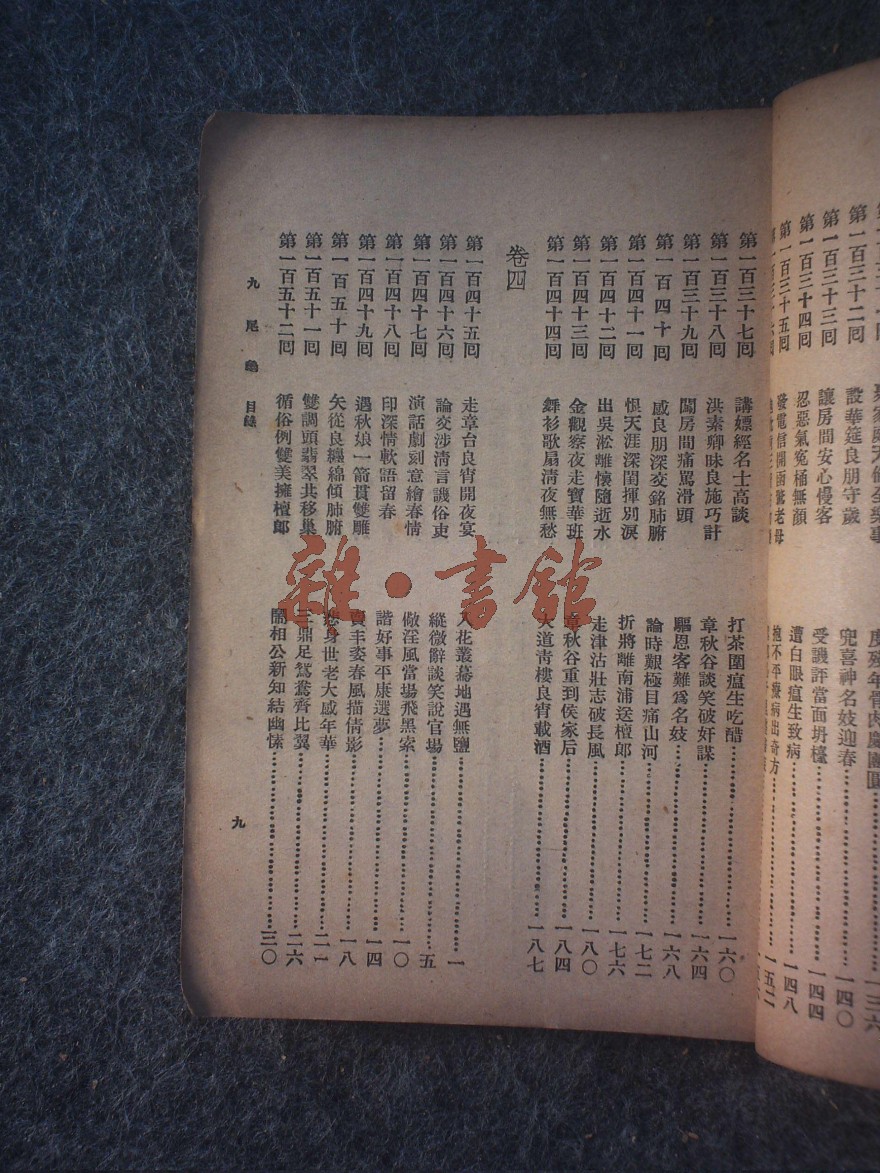 第一百三十二囘 設華筵良朋守歲 兜喜神名妓迎春 一四〇
第一百三十三囘 讓房間安心慢客 受譏評當面坍檯 一四四
第一百三十四囘 忍惡氣寃桶無顏 遭白眼瘟生致病 一四八
第一百三十五囘 發電信開函驚老母 抱不平療病出奇方 一五二
第一百三十七囘 講嫖經名士高談 打茶圍瘟生吃醋 一六〇
第一百三十八囘 洪素卿昧良施巧計 章秋谷談笑破奸謀 一六四
第一百三十九囘 鬧房間痛罵滑頭 驅恩客難爲名妓 一六八
第一百四十囘 感良朋深交銘肺腑 論時艱極目痛山河 一七二
第一百四十一囘 恨天涯深閨揮別淚 折將離南浦送檀郎 一七六
第一百四十二囘 出吳淞離懷隨逝水 走津沽壯志破長風 一八〇
第一百四十三囘 金觀察夜走寶華班 章秋谷重到侯家后 一八四
第一百四十四囘 舞衫歌扇淸夜無愁 大道靑樓良宵載酒 一八七
卷四
第一百四十五囘 走章台良宵開夜宴 入花叢驀地遇無鹽 一
第一百四十六囘 論交涉淸言譏俗吏 縱微辭談笑說官場 五
第一百四十七囘 演話劇刻意繪春情 儆淫風當場飛黑索 一〇
第一百四十八囘 印深情軟語留春 諧好事平康選夢 一四
第一百四十九囘 遇秋娘一箭貫雙雕 賣丰姿春風描倩影 一八
第一百五十囘 矢從良纏綿傾肺腑 悲身世老大感年華 二一
第一百五十一囘 雙調頭翡翠共移巢 三鼎足鴛鴦齊比翼 二六
第一百五十二囘 循俗例雙美擁檀郎 鬧相公新知結幽愫 三〇
九尾龜 目錄
九
雜·書館